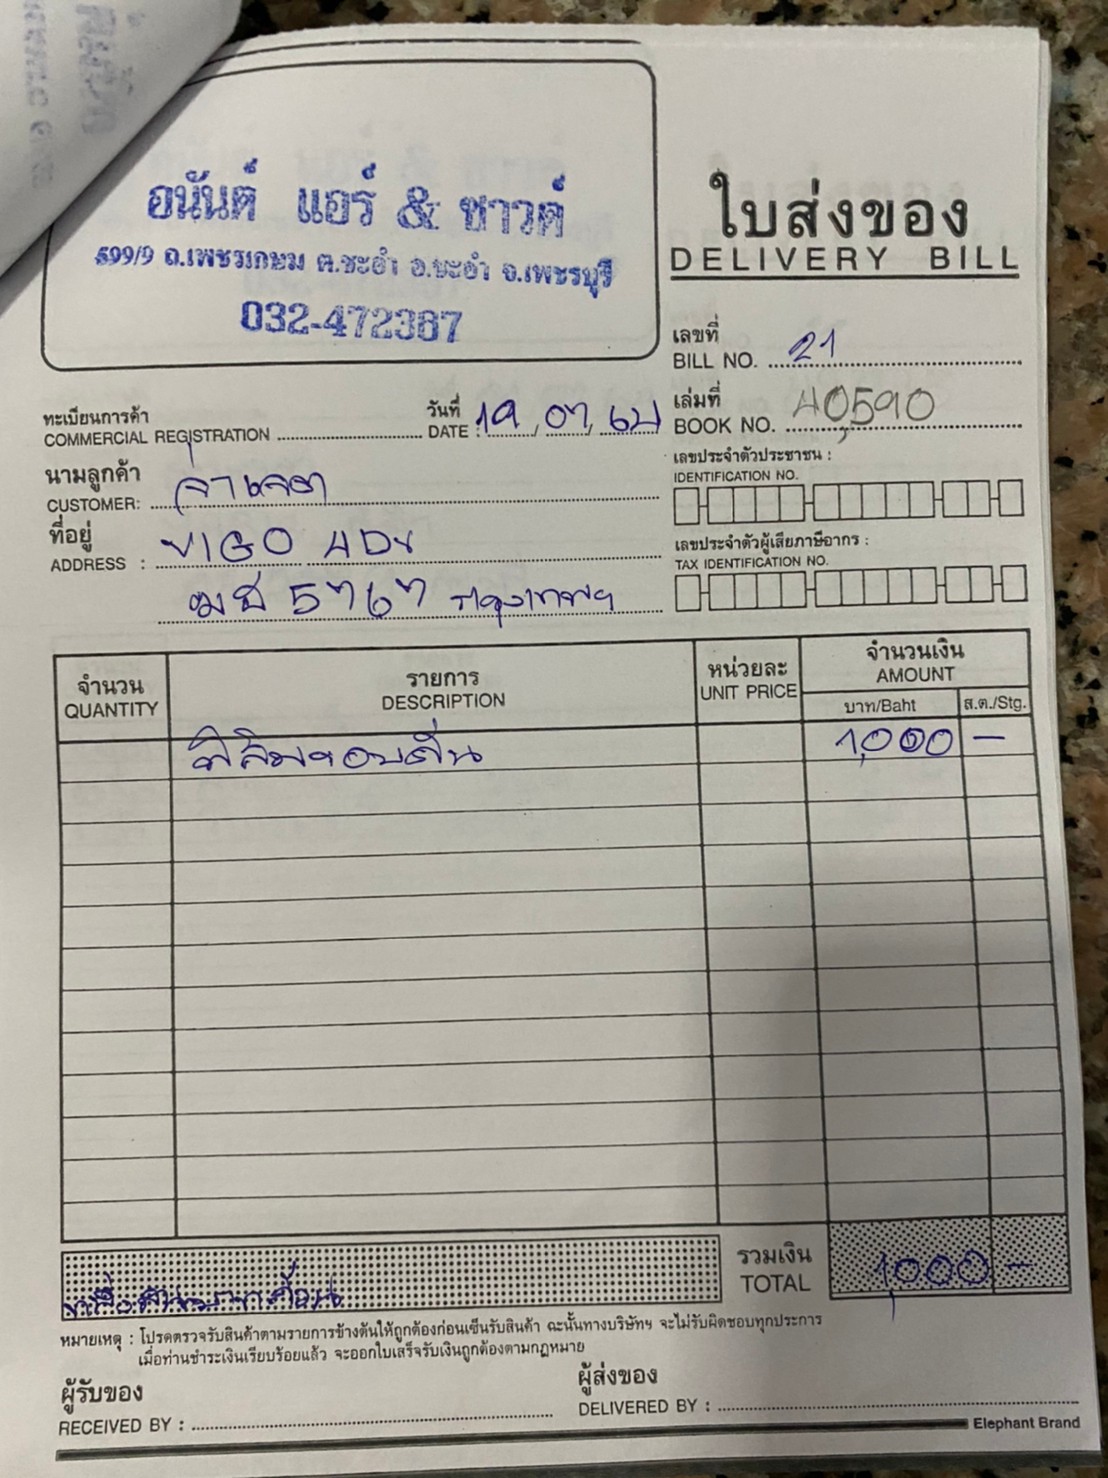 อนันต์ แอร์ & ซาวด์
599/9 ถ.เพชรเกษม ต.ชะอำ อ.ชะอำ จ.เพชรบุรี
032-472387
ใบส่งของ
DELIVERY BILL
เลขที่
BILL NO. 21
ทะเบียนการค้า
COMMERCIAL REGISTRATION
วันที่
DATE 19, 07, 64
เล่มที่
BOOK NO. 40,590
นามลูกค้า
CUSTOMER:
ที่อยู่
ADDRESS : VIGO 4Dr
5767 กรุงเทพฯ
เลขประจำตัวประชาชน :
IDENTIFICATION NO.
เลขประจำตัวผู้เสียภาษีอากร :
TAX IDENTIFICATION NO.
จำนวน
QUANTITY
รายการ
DESCRIPTION
หน่วยละ
UNIT PRICE
จำนวนเงิน
AMOUNT
บาท/Baht ส.ต./Stg.
1,000 -
รวมเงิน
TOTAL
1,000 -
หมายเหตุ : โปรดตรวจรับสินค้าตามรายการข้างต้นให้ถูกต้องก่อนเซ็นรับสินค้า ฉะนั้นทางบริษัทฯ จะไม่รับผิดชอบทุกประการ
เมื่อท่านชำระเงินเรียบร้อยแล้ว จะออกใบเสร็จรับเงินถูกต้องตามกฎหมาย
ผู้รับของ
RECEIVED BY :
ผู้ส่งของ
DELIVERED BY :
Elephant Brand